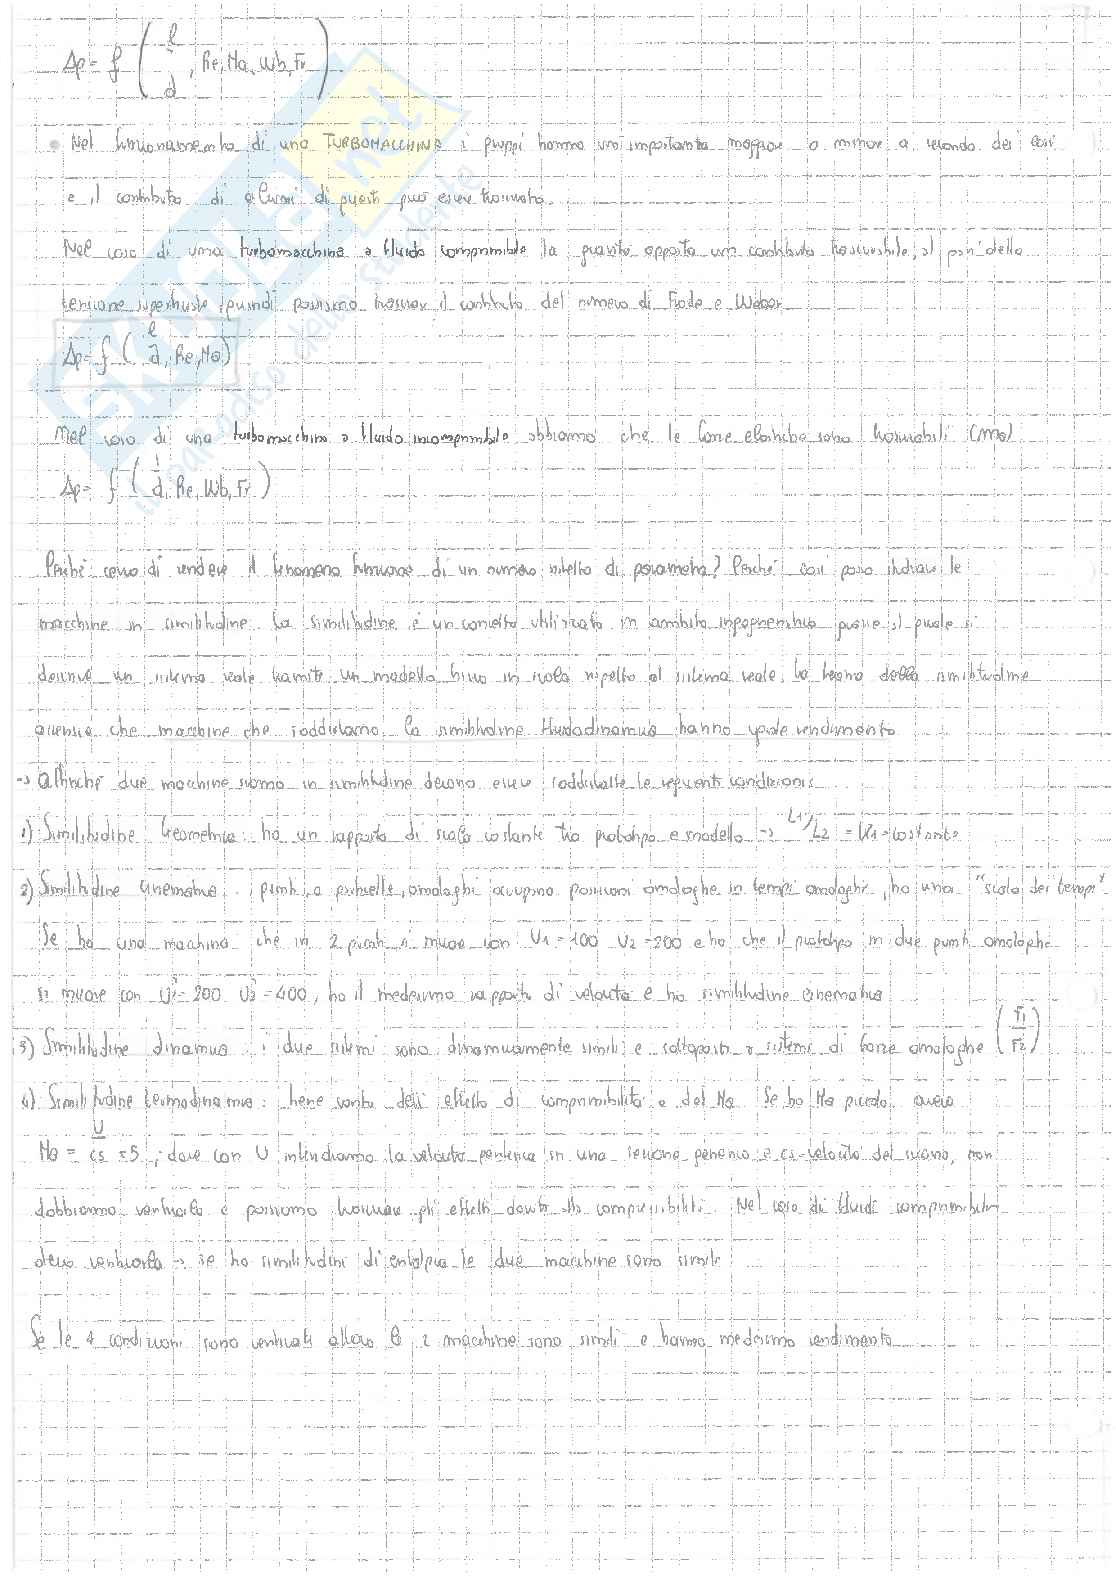 Δp = f ( l/d , Re, Ma, Wb, Fr )
• Nel funzionamento di una TURBOMACCHINA i gruppi hanno un'importanza maggiore o minore a seconda dei casi
e il contributo di alcuni di questi può essere trascurato.
Nel caso di una turbomacchina a fluido comprimibile la gravità apporta un contributo trascurabile, al pari della
tensione superficiale, quindi possiamo trascurare il contributo del numero di Frode e Weber
Δp = f ( l/d, Re, Ma )
Nel caso di una turbomacchina a fluido incomprimibile abbiamo che le forze elastiche sono trascurabili (Ma)
Δp = f ( l/d, Re, Wb, Fr )
Perché cerco di rendere il fenomeno funzione di un numero ristretto di parametri? Perché così posso studiare le
macchine in similitudine. La similitudine è un concetto utilizzato in ambito ingegneristico grazie al quale si
descrive un sistema reale tramite un modello fisico in scala rispetto al sistema reale. La teoria della similitudine
asserisce che macchine che soddisfano la similitudine fluidodinamica hanno uguale rendimento
→ Affinché due macchine siano in similitudine devono essere soddisfatte le seguenti condizioni:
1) Similitudine Geometrica: ho un rapporto di scala costante tra prototipo e modello → L1/L2 = K1 = costante
2) Similitudine cinematica: i punti, o particelle, omologhi occupano posizioni omologhe in tempi omologhi, ho una "scala dei tempi"
Se ho una macchina che in 2 punti si muove con U1 = 100 U2 = 200 e ho che il prototipo in due punti omologhi
si muove con = 200 = 400, ho il medesimo rapporto di velocità e ho similitudine cinematica
3) Similitudine dinamica: i due sistemi sono dinamicamente simili e sottoposti a sistemi di forze omologhe (F1/F2)
4) Similitudine termodinamica: tiene conto dell'effetto di comprimibilità e del Ma. Se ho Ma piccolo, ovvero
Ma = U/cs = 5, dove con U intendiamo la velocità periferica in una sezione generica e cs = velocità del suono, non
dobbiamo verificarlo e possiamo trascurare gli effetti dovuti alla compressibilità. Nel caso di fluidi comprimibili
devo verificarla → se ho similitudini di entalpia le due macchine sono simili
Se le 4 condizioni sono verificate allora le 2 macchine sono simili e hanno medesimo rendimento